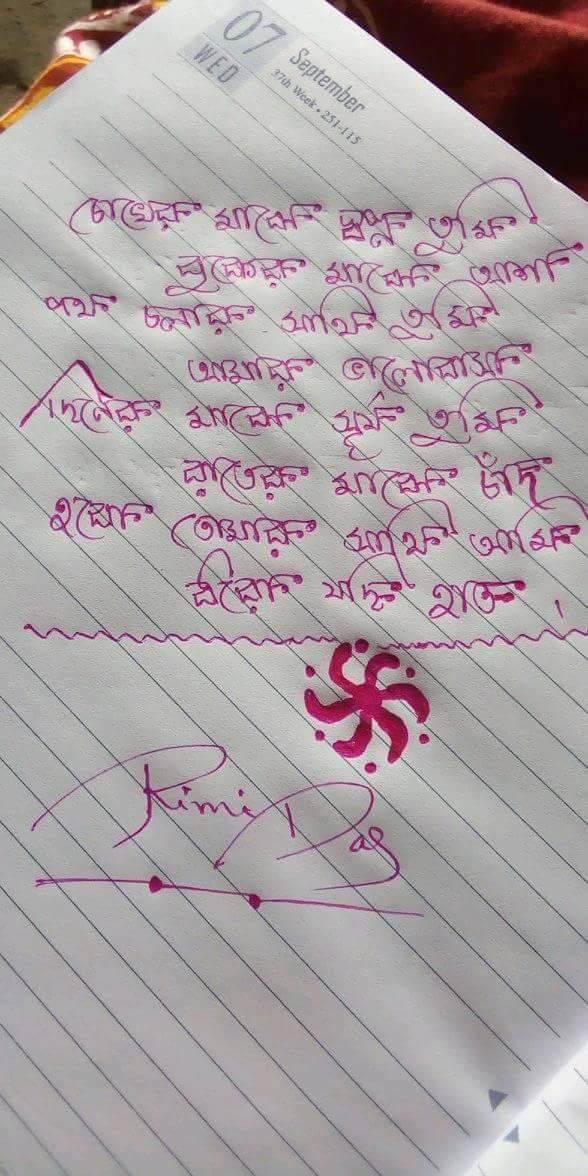 07
WED
September
37th Week • 251-115
চোখের মাঝে স্বপ্ন তুমি
বুকের মাঝে আশা
পথ চলার সাথি তুমি
আমার ভালোবাসা
দিনের মাঝে সূর্য তুমি
রাতের মাঝে চাঁদ
হবো তোমার সাথি আমি
ধরো যদি হাত।
Rimi Das